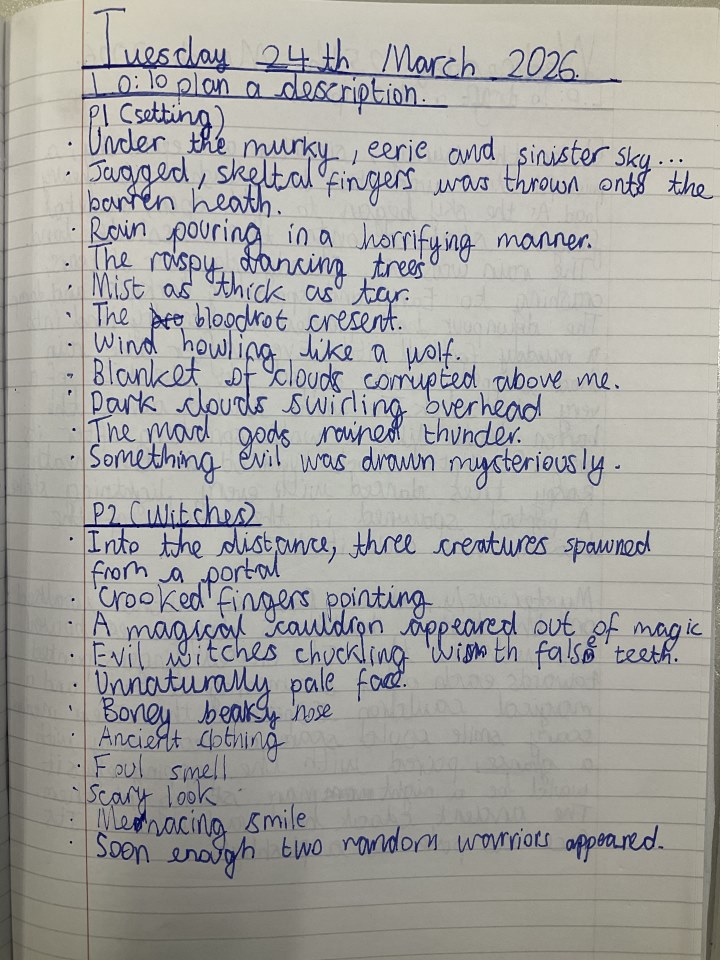 Tuesday 24th March 2026.
L.O: To plan a description.
P1 (setting)
· Under the murky, eerie and sinister sky...
· Jagged, skeltal fingers was thrown onto the
barren heath.
· Rain pouring in a horrifying manner.
· The raspy dancing trees
· Mist as thick as tar.
· The bloodrot cresent.
· Wind howling like a wolf.
· Blanket of clouds corrupted above me.
· Dark clouds swirling overhead
· The mad gods rained thunder.
· Something evil was drawn mysteriously.
P2 (Witches)
· Into the distance, three creatures spawned
from a portal
· Crooked fingers pointing
· A magical cauldron appeared out of magic
· Evil witches chuckling with false teeth.
· Unnaturally pale face.
· Boney beaksy nose
· Ancient clothing
· Foul smell
· Scary look
· Menacing smile
· Soon enough two random warriors appeared.